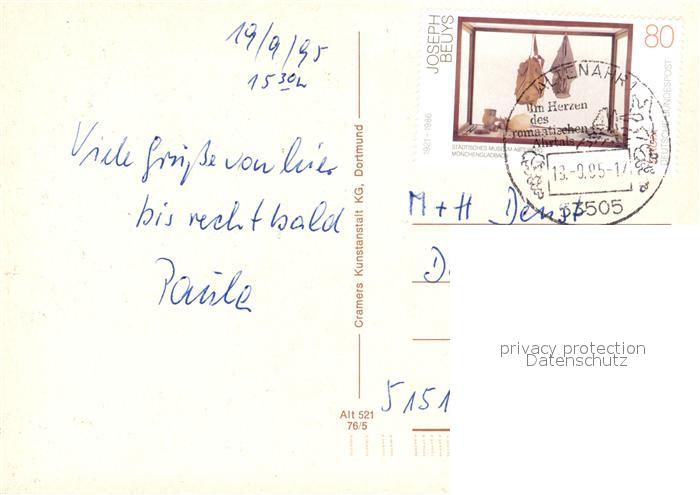 19/9/95
15 30h
Viele Grüße von hier
bis recht bald
Paula
Cramers Kunstanstalt KG, Dortmund
Alt 521
76/5
JOSEPH
BEUYS
1921 - 1986
80
DEUTSCHE BUNDESPOST
STÄDTISCHES MUSEUM
MÖNCHENGLADBACH
ALTENAHR 1
Im Herzen
des
romantischen
Ahrtals
-9.95-17
53505
M + H
D
5151
privacy protection
Datenschutz